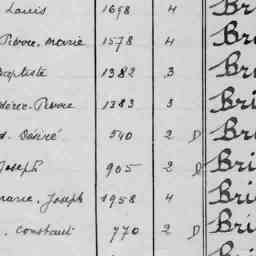 Louis 1698 4 Bri
Pierre-Marie 1578 4 Bri
Baptiste 1382 3 Bri
déric-Pierre 1383 3 Bri
d. Désiré 540 2 D Bri
Joseph 905 2 D Bri
Marie, Joseph 1958 4 Bri
, Constant 770 2 D Bri